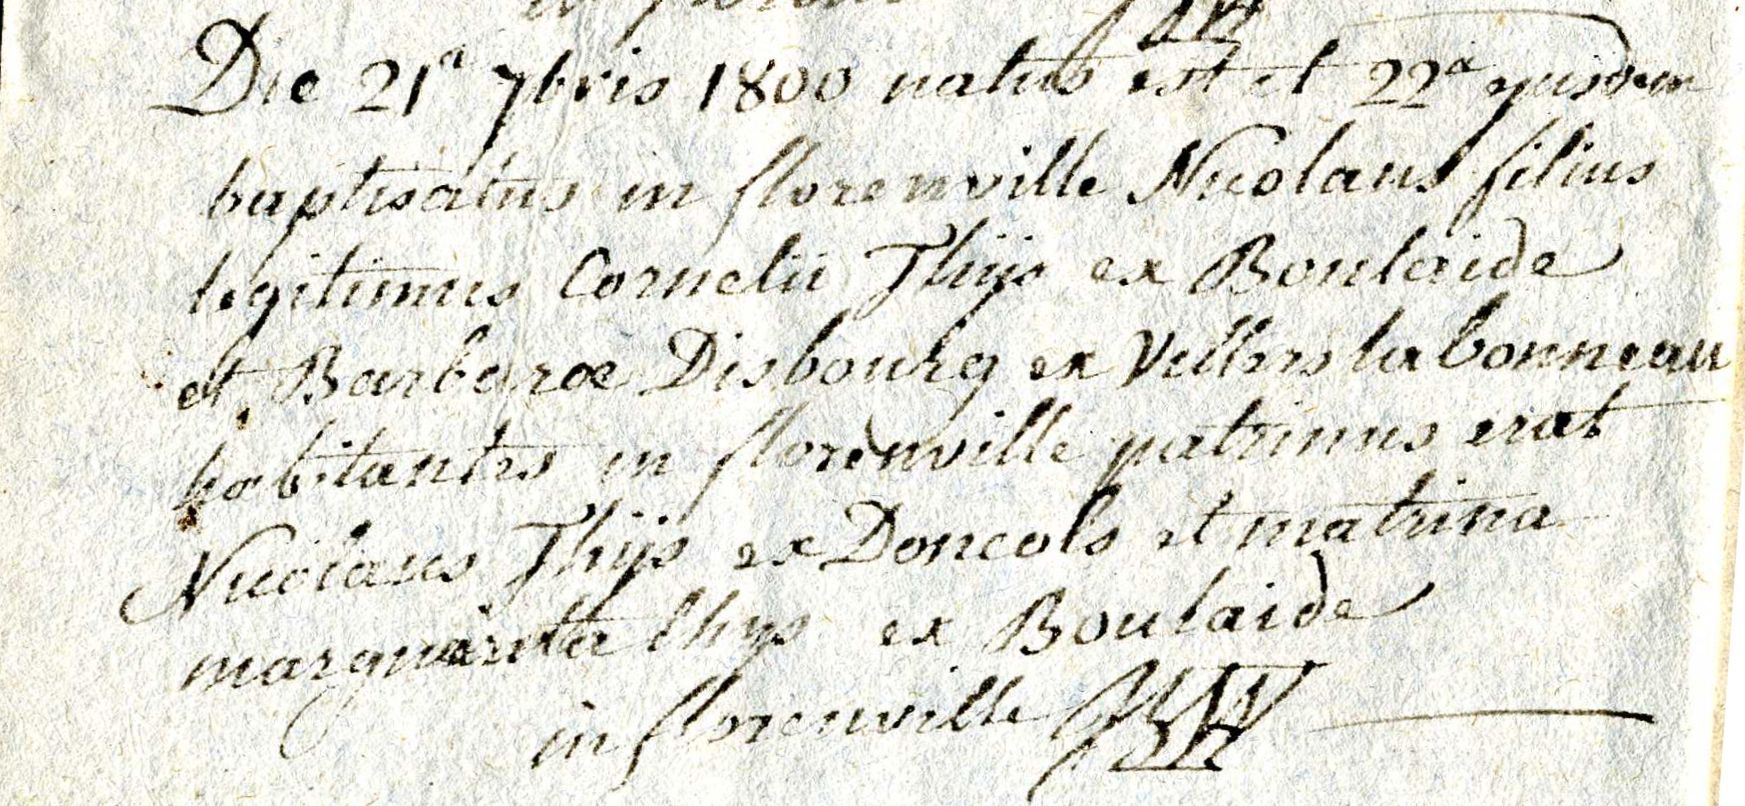 Die 21a 7bris 1800 natus est et 22a ejusdem
baptisatus in florenville Nicolaus filius
legitimus Cornelii Thijs ex Boulaide
et Barbarae Disbourg ex Villers la bonneau
habitantes in florenville patrinus erat
Nicolaus Thijs ex Doncols et matrina
marguarita thys ex Boulaide
in florenville